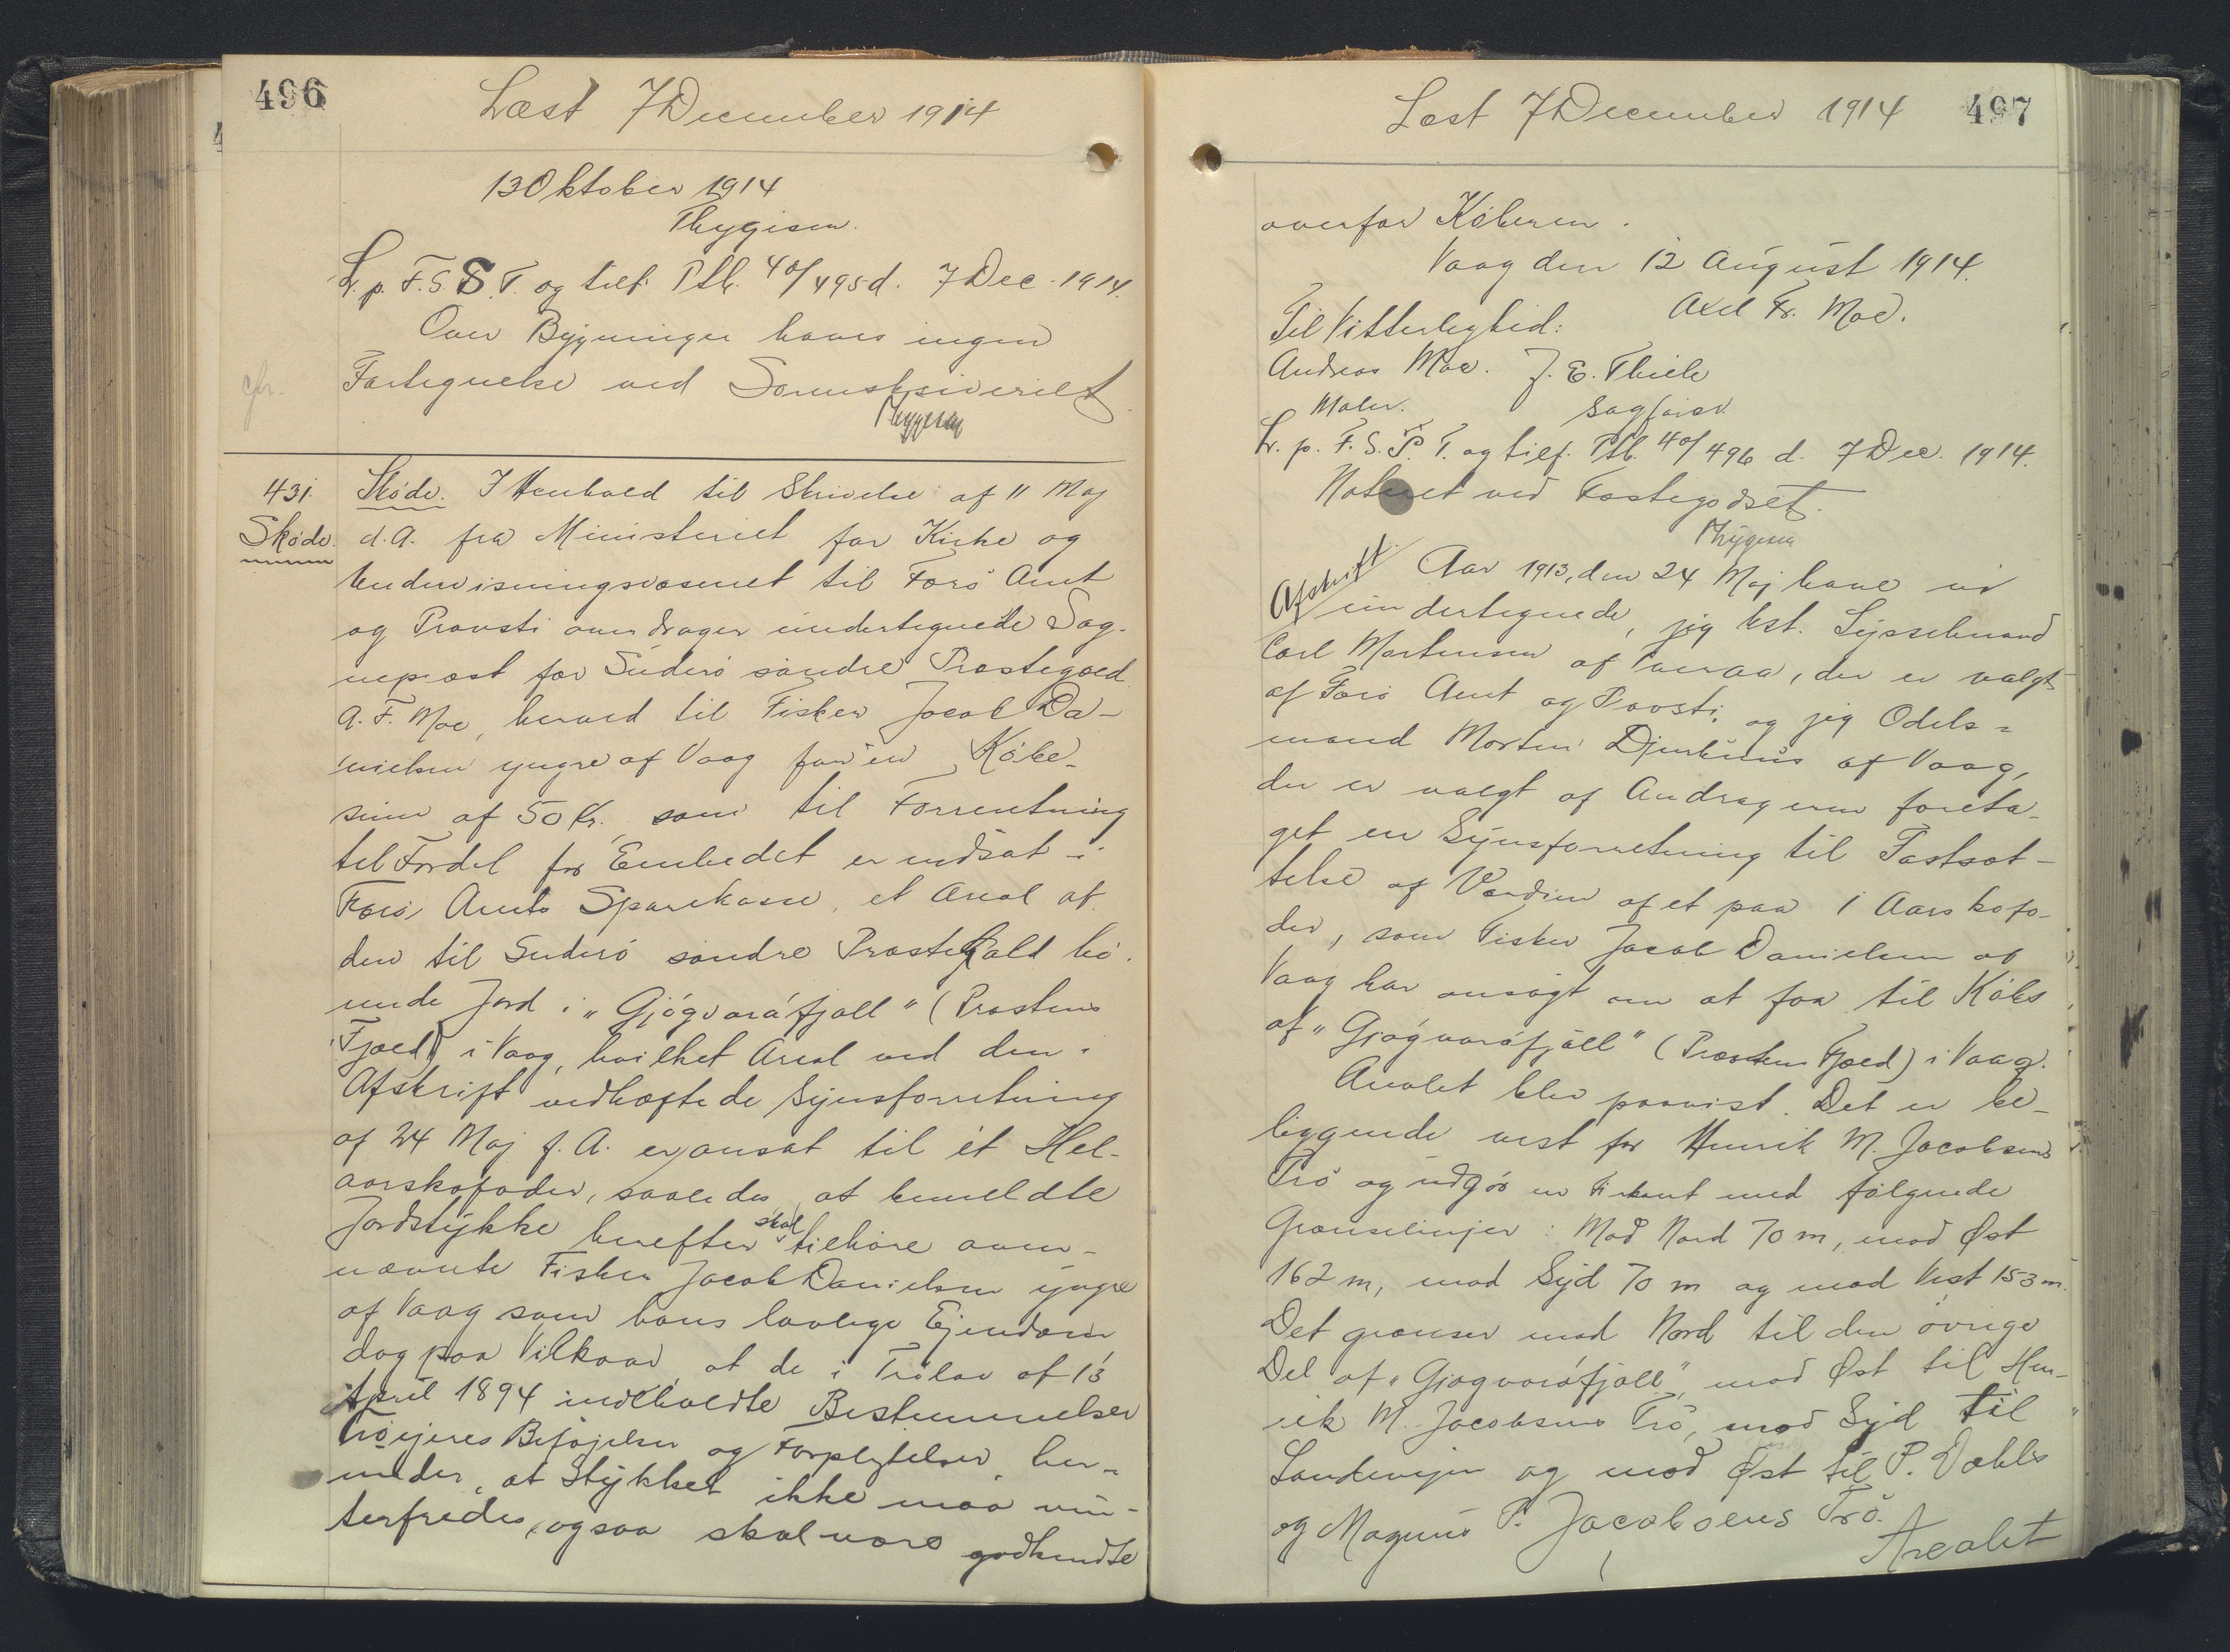 496
Læst 7 December 1914
13 Oktober 1914
Thygesen.
L. p. F. S. S. T. og tilf. Ptb. 40/495 d. 7 Dec. 1914.
Over Bygninger haves ingen
Fortegnelse ved Sorenskriveriet.
cfr.
Thygesen
431.
Skøde.
Skøde. I Henhold til Skrivelse af 11 Maj
d. A. fra Ministeriet for Kirke og
Undervisningsvæsenet til Færö Amt
og Provsti overdrager undertegnede Sog-
nepræst for Suderö søndre Præstegæld
A. F. Moe, herved til Fisker Jacob Da-
nielsen yngre af Vaag for en Købe-
sum af 50 Kr. som til Forrentning
til Fordel for Embedet er indsat i
Færö Amts Sparekasse, et Areal af
den til Suderö søndre Præstegæld hö-
rende Jord i "Gjógvaráfjall" (Præstens
Fjæld) i Vaag, hvilket Areal ved den i
Afskrift vedhæftede Synsforretning
af 24 Maj f. A. er ansat til ét Hel-
aarskofoder, saaledes at bemeldte
Jordstykke herefter skal tilhöre oven-
nævnte Fisker Jacob Danielsen yngre
af Vaag som hans lovlige Ejendom
dog paa Vilkaar at de i Trölov af 13
April 1894 indeholdte Bestemmelser
Tröejeres Beföjelser og Forpligtelser, her-
under, at Stykket ikke maa vin-
terfredes, ogsaa skal være godkendte
Læst 7 December 1914
497
overfor Köberen.
Vaag den 12 August 1914.
Axel Fr. Moe.
Til Vitterlighed:
Andreas Moe. J. E. Thiele
Maler. Sagförer.
L. p. F. S. P. T. og tilf. Ptb. 40/496 d. 7 Dec. 1914.
Noteret ved Fæstegodset.
Thygesen
Afskrift.
Aar 1913, den 24 Maj have vi
undertegnede, jeg kst. Sysselmand
Carl Mortensen af Tveraa, der er valgt
af Færö Amt og Provsti, og jeg Odels=
mand Morten Djurhuus af Vaag,
der er valgt af Andrageren foreta-
get en Synsforretning til Fastsæt-
telse af Værdien af et paa 1 Aars kofo-
der, som Fisker Jacob Danielsen af
Vaag har ansögt om at faa til Köbs
af "Gjógvaráfjall" (Præstens Fjæld) i Vaag.
Arealet blev paavist. Det er be-
liggende vest for Henrik M. Jacobsens
Trö og udgör en Firkant med fölgende
Grænselinjer: Mod Nord 70 m, mod Øst
162 m, mod Syd 70 m og mod Vest 153 m.
Det grænser mod Nord til den övrige
Del af "Gjógvaráfjall", mod Øst til Hen-
rik M. Jacobsens Trö, mod Syd til
Landevejen og mod Øst til P. Dahls
og Magnus P. Jacobsens Trö.
Arealet